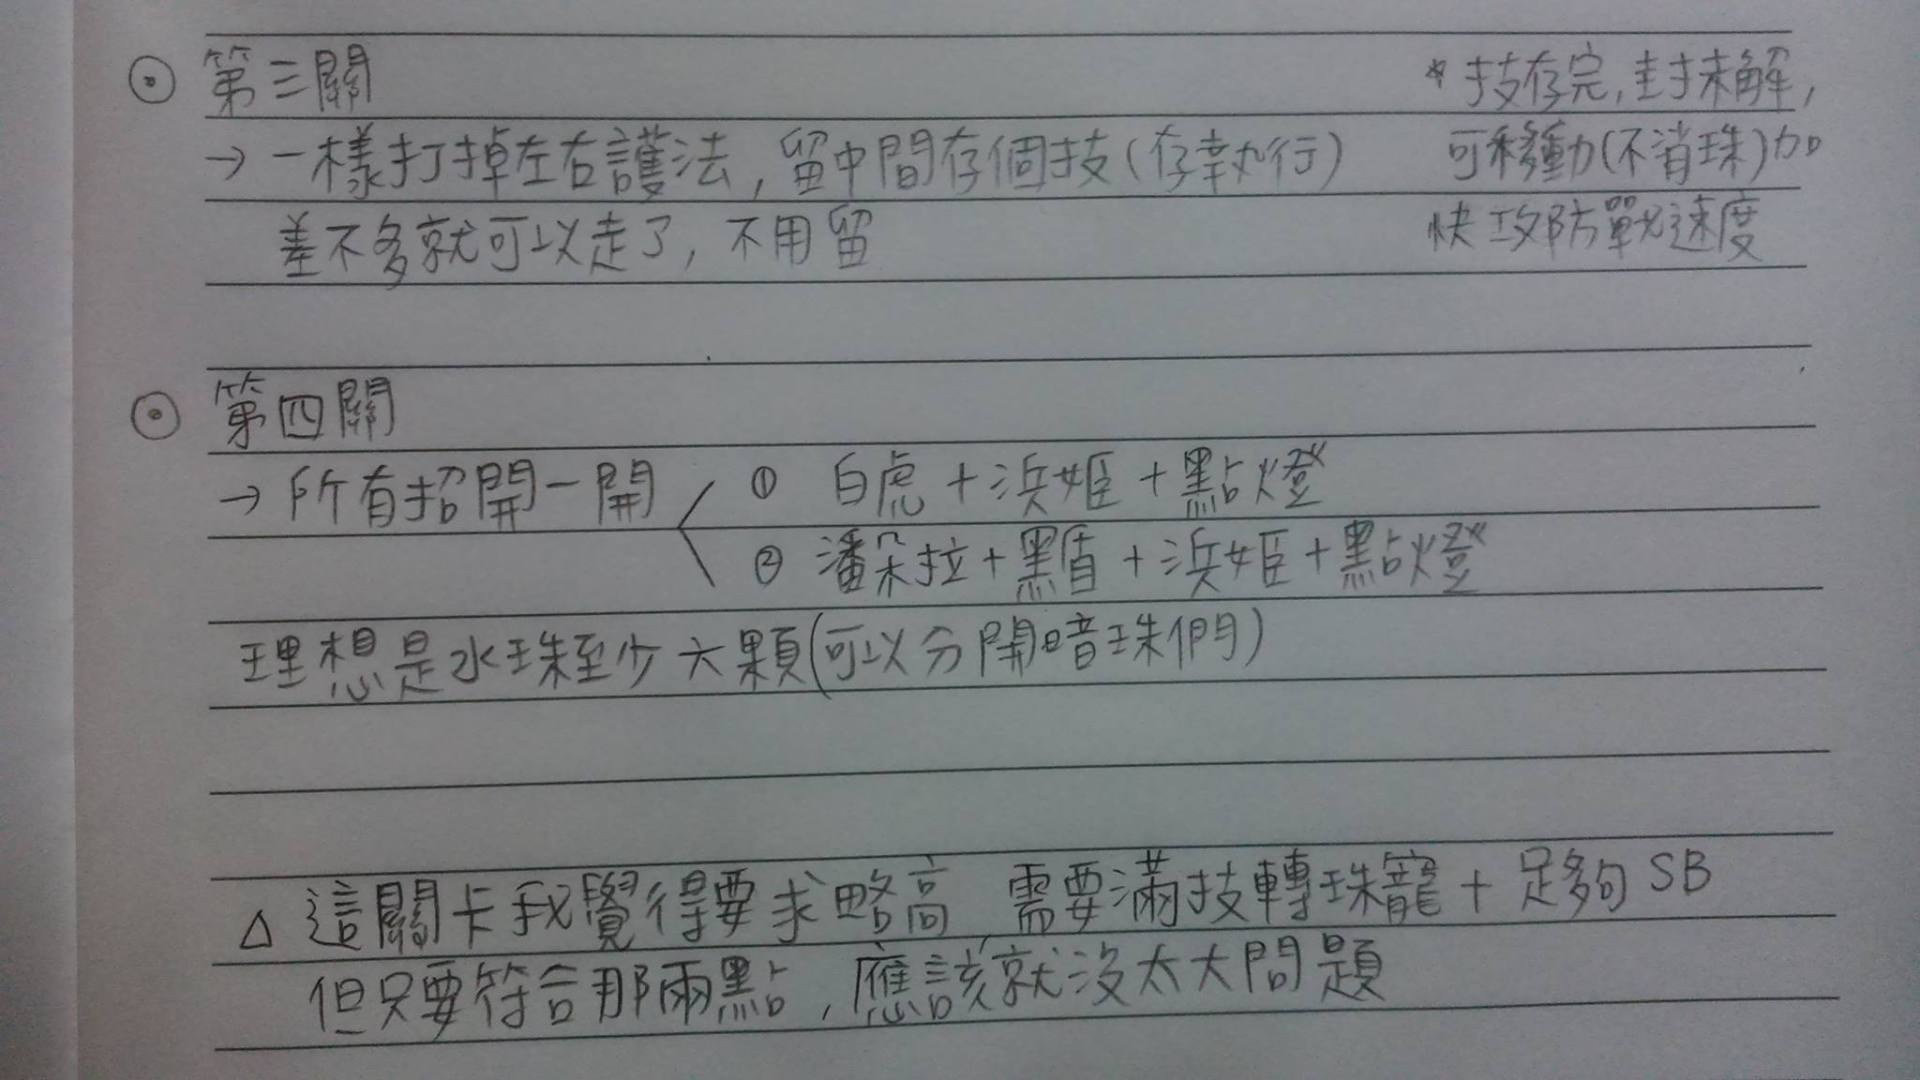 ⊙ 第三關
→ 一樣打掉左右護法, 留中間存個技(存執行)
差不多就可以走了, 不用留
* 技存完, 封未解,
可移動(不消珠)加
快攻防戰速度
⊙ 第四關
→ 所有招開一開 ① 白虎+浜姬+點燈
② 潘朵拉+黑盾+浜姬+點燈
理想是水珠至少六顆(可以分開暗珠們)
△ 這關卡我覺得要求略高 需要滿技轉珠寵+足夠SB
但只要符合那兩點, 應該就沒太大問題